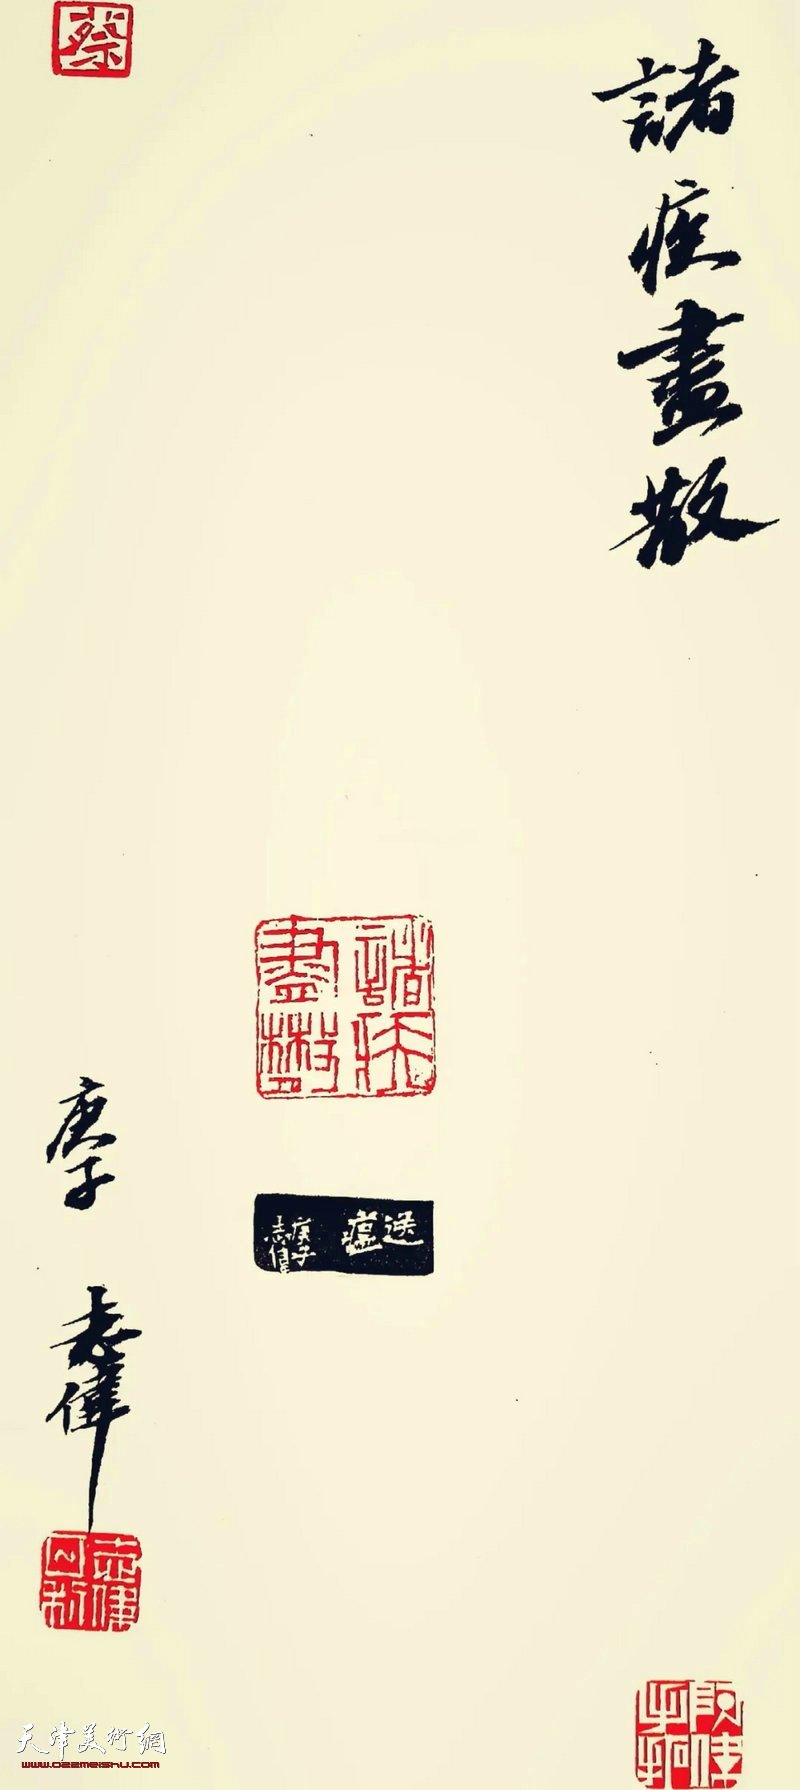 諸疾盡散
諸疾
盡散
送瘟
庚子
志偉
庚子 志偉
天津美術網
www.022meishu.com